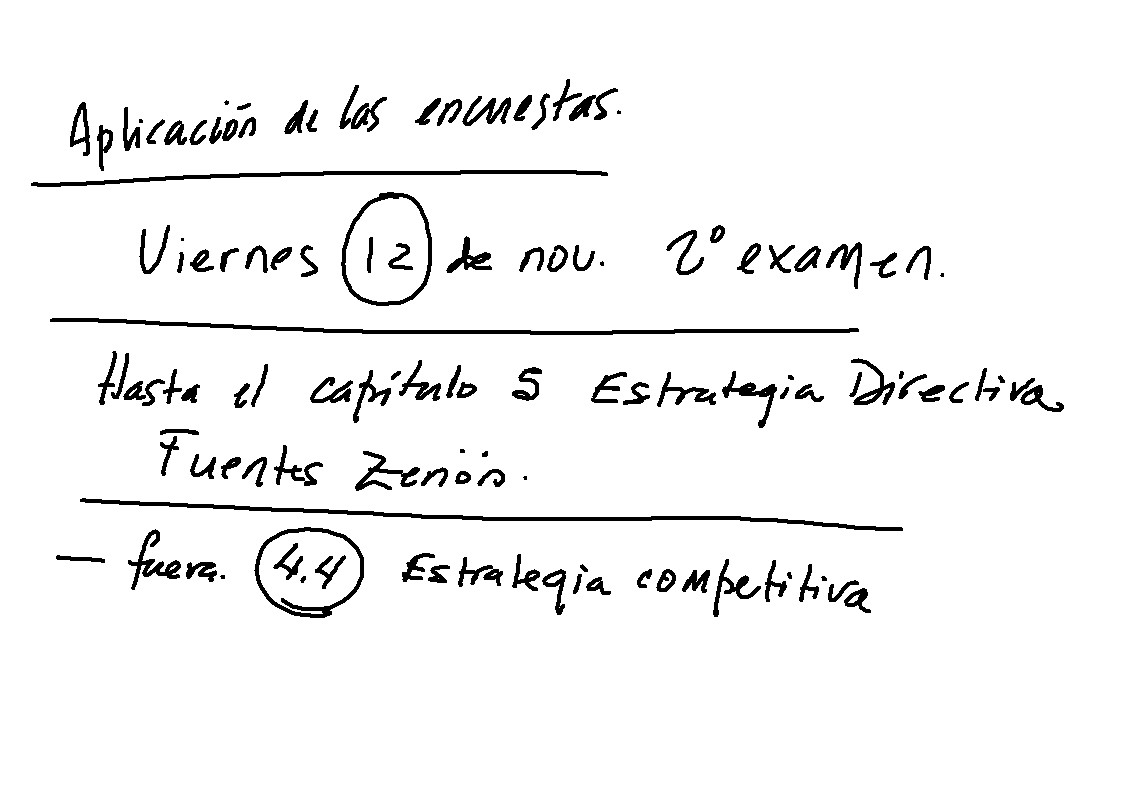 Aplicación de las encuestas.
Viernes 12 de nov. 2º examen.
Hasta el capítulo 5 Estrategia Directiva
Fuentes Zenón.
— fuera. 4.4 Estrategia competitiva